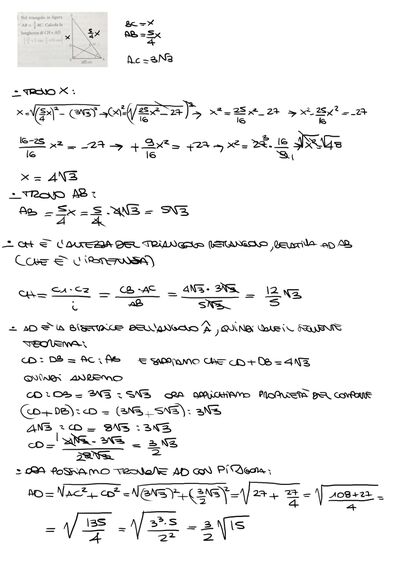 Nel triangolo in figura
AB = 5/4 BC. Calcola la
lunghezza di CH e AD.
x
5/4 x
BC = x
AB = 5/4 x
AC = 3√3
• TROVO X:
x = √((5/4 x)² - (3√3)²) → (x)² = (√(25/16 x² - 27))² → x² = 25/16 x² - 27 → x² - 25/16 x² = -27
16-25/16 x² = -27 → + 9/16 x² = +27 → x² = 27³ · 16/9₁ → √x² = √48
x = 4√3
• TROVO AB:
AB = 5/4 x = 5/4 · 4√3 = 5√3
• CH È L'ALTEZZA DEL TRIANGOLO RETTANGOLO, RELATIVA AD AB
(CHE È L'IPOTENUSA)
CH = C1 · C2 / i = CB · AC / AB = 4√3 · 3√3 / 5√3 = 12/5 √3
• AD È LA BISETTRICE DELL'ANGOLO Â, QUINDI VALE IL SEGUENTE
TEOREMA:
CD : DB = AC : AB E SAPPIAMO CHE CD + DB = 4√3
QUINDI AVREMO
CD : DB = 3√3 : 5√3 ORA APPLICHIAMO PROPRIETÀ DEL COMPORRE
(CD + DB) : CD = (3√3 + 5√3) : 3√3
4√3 : CD = 8√3 : 3√3
CD = 4√3 · 3√3 / 8√3 = 3/2 √3
• ORA POSSIAMO TROVARE AD CON PITAGORA:
AD = √(AC² + CD²) = √((3√3)² + (3/2 √3)²) = √(27 + 27/4) = √(108+27/4) =
= √(135/4) = √(3³·5/2²) = 3/2 √15